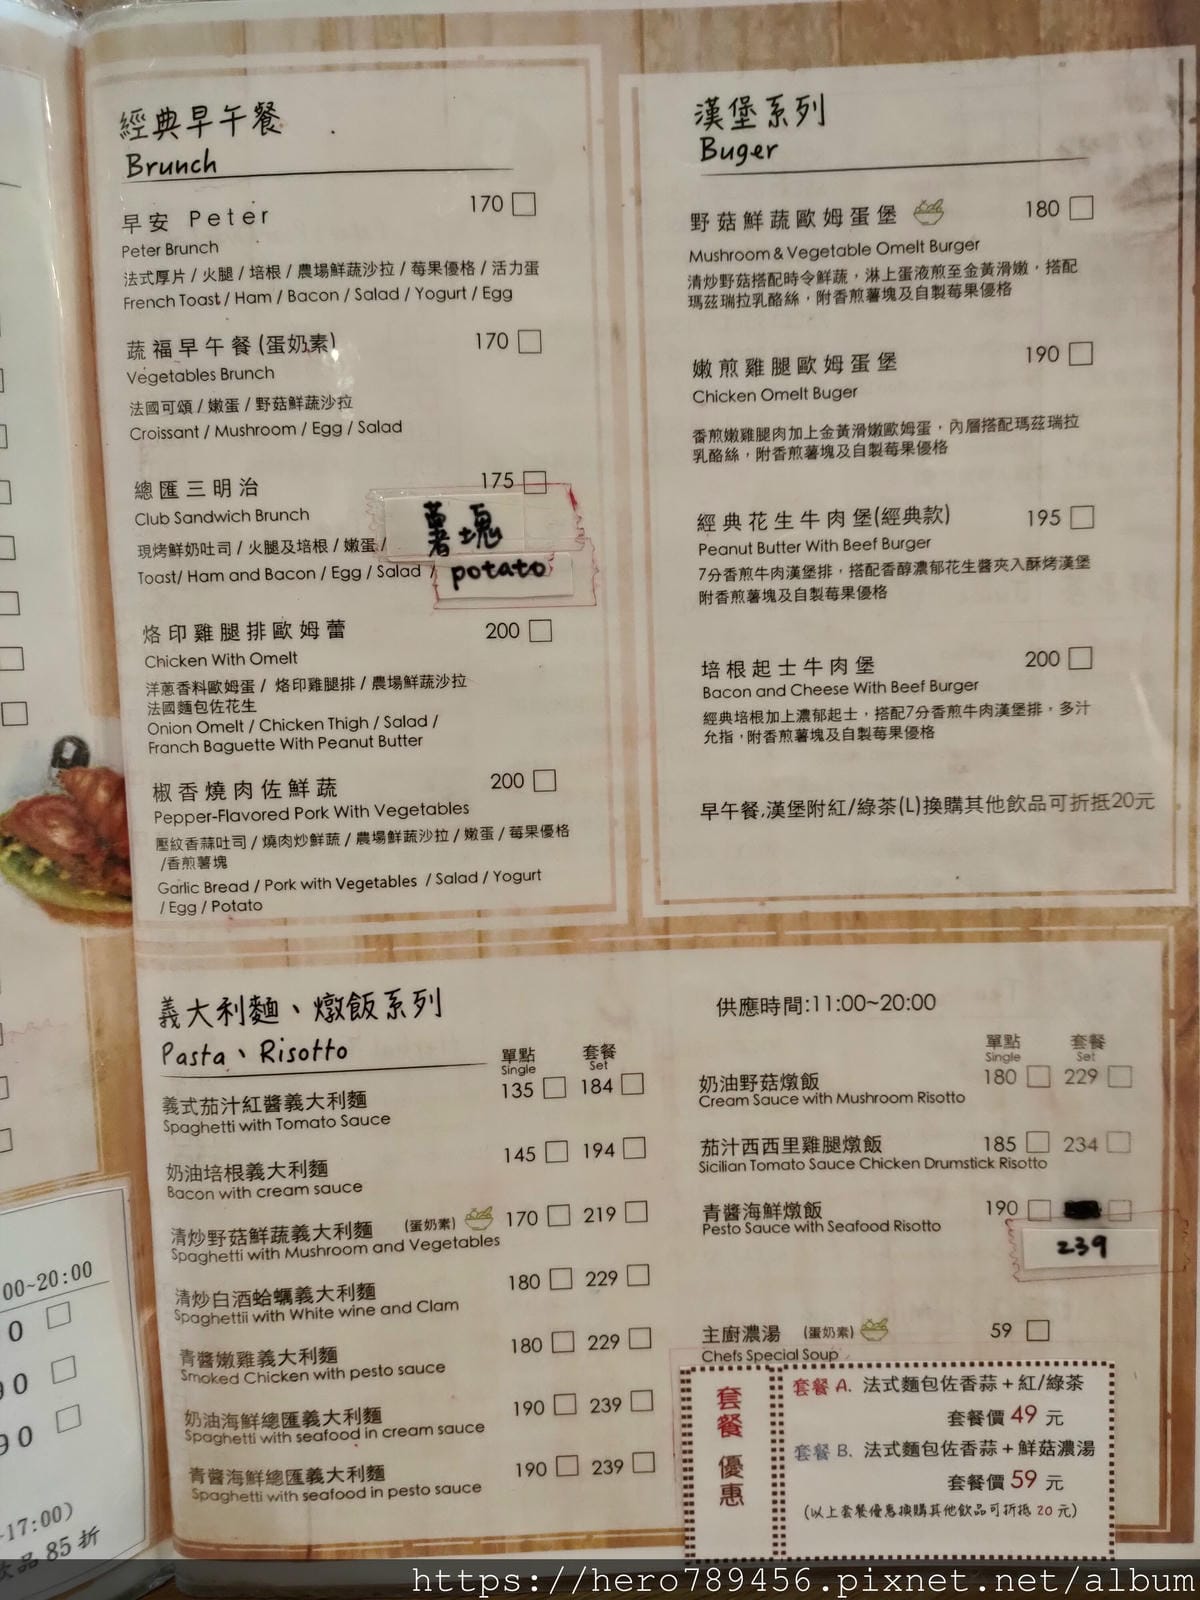 經典早午餐
Brunch
早安 Peter 170
Peter Brunch
法式厚片 / 火腿 / 培根 / 農場鮮蔬沙拉 / 莓果優格 / 活力蛋
French Toast / Ham / Bacon / Salad / Yogurt / Egg
蔬福早午餐 (蛋奶素) 170
Vegetables Brunch
法國可頌 / 嫩蛋 / 野菇鮮蔬沙拉
Croissant / Mushroom / Egg / Salad
總匯三明治 175
Club Sandwich Brunch
現烤鮮奶吐司 / 火腿及培根 / 嫩蛋 / 薯塊
Toast/ Ham and Bacon / Egg / Salad / potato
烙印雞腿排歐姆蕾 200
Chicken With Omelt
洋蔥香料歐姆蛋 / 烙印雞腿排 / 農場鮮蔬沙拉
法國麵包佐花生
Onion Omelt / Chicken Thigh / Salad /
Franch Baguette With Peanut Butter
椒香燒肉佐鮮蔬 200
Pepper-Flavored Pork With Vegetables
壓紋香蒜吐司 / 燒肉炒鮮蔬 / 農場鮮蔬沙拉 / 嫩蛋 / 莓果優格
/香煎薯塊
Garlic Bread / Pork with Vegetables / Salad / Yogurt
/ Egg / Potato
漢堡系列
Buger
野菇鮮蔬歐姆蛋堡 180
Mushroom & Vegetable Omelt Burger
清炒野菇搭配時令鮮蔬，淋上蛋液煎至金黃滑嫩，搭配
瑪茲瑞拉乳酪絲，附香煎薯塊及自製莓果優格
嫩煎雞腿歐姆蛋堡 190
Chicken Omelt Buger
香煎嫩雞腿肉加上金黃滑嫩歐姆蛋，內層搭配瑪茲瑞拉
乳酪絲，附香煎薯塊及自製莓果優格
經典花生牛肉堡(經典款) 195
Peanut Butter With Beef Burger
7分香煎牛肉漢堡排，搭配香醇濃郁花生醬夾入酥烤漢堡
附香煎薯塊及自製莓果優格
培根起士牛肉堡 200
Bacon and Cheese With Beef Burger
經典培根加上濃郁起士，搭配7分香煎牛肉漢堡排，多汁
允指，附香煎薯塊及自製莓果優格
早午餐,漢堡附紅/綠茶(L)換購其他飲品可折抵20元
義大利麵、燉飯系列
Pasta、Risotto
單點 套餐
Single Set
義式茄汁紅醬義大利麵 135 184
Spaghetti with Tomato Sauce
奶油培根義大利麵 145 194
Bacon with cream sauce
清炒野菇鮮蔬義大利麵 (蛋奶素) 170 219
Spaghetti with Mushroom and Vegetables
清炒白酒蛤蠣義大利麵 180 229
Spaghettii with White wine and Clam
青醬嫩雞義大利麵 180 229
Smoked Chicken with pesto sauce
奶油海鮮總匯義大利麵 190 239
Spaghetti with seafood in cream sauce
青醬海鮮總匯義大利麵 190 239
Spaghetti with seafood in pesto sauce
供應時間:11:00~20:00
單點 套餐
Single Set
奶油野菇燉飯 180 229
Cream Sauce with Mushroom Risotto
茄汁西西里雞腿燉飯 185 234
Sicilian Tomato Sauce Chicken Drumstick Risotto
青醬海鮮燉飯 190
Pesto Sauce with Seafood Risotto
239
主廚濃湯 (蛋奶素) 59
Chefs Special Soup
套餐優惠
套餐 A. 法式麵包佐香蒜+紅/綠茶
套餐價 49 元
套餐 B. 法式麵包佐香蒜+鮮菇濃湯
套餐價 59 元
(以上套餐優惠換購其他飲品可折抵 20 元)
00~20:00
0
90
90
-17:00)
飲品 85 折
https://hero789456.pixnet.net/album